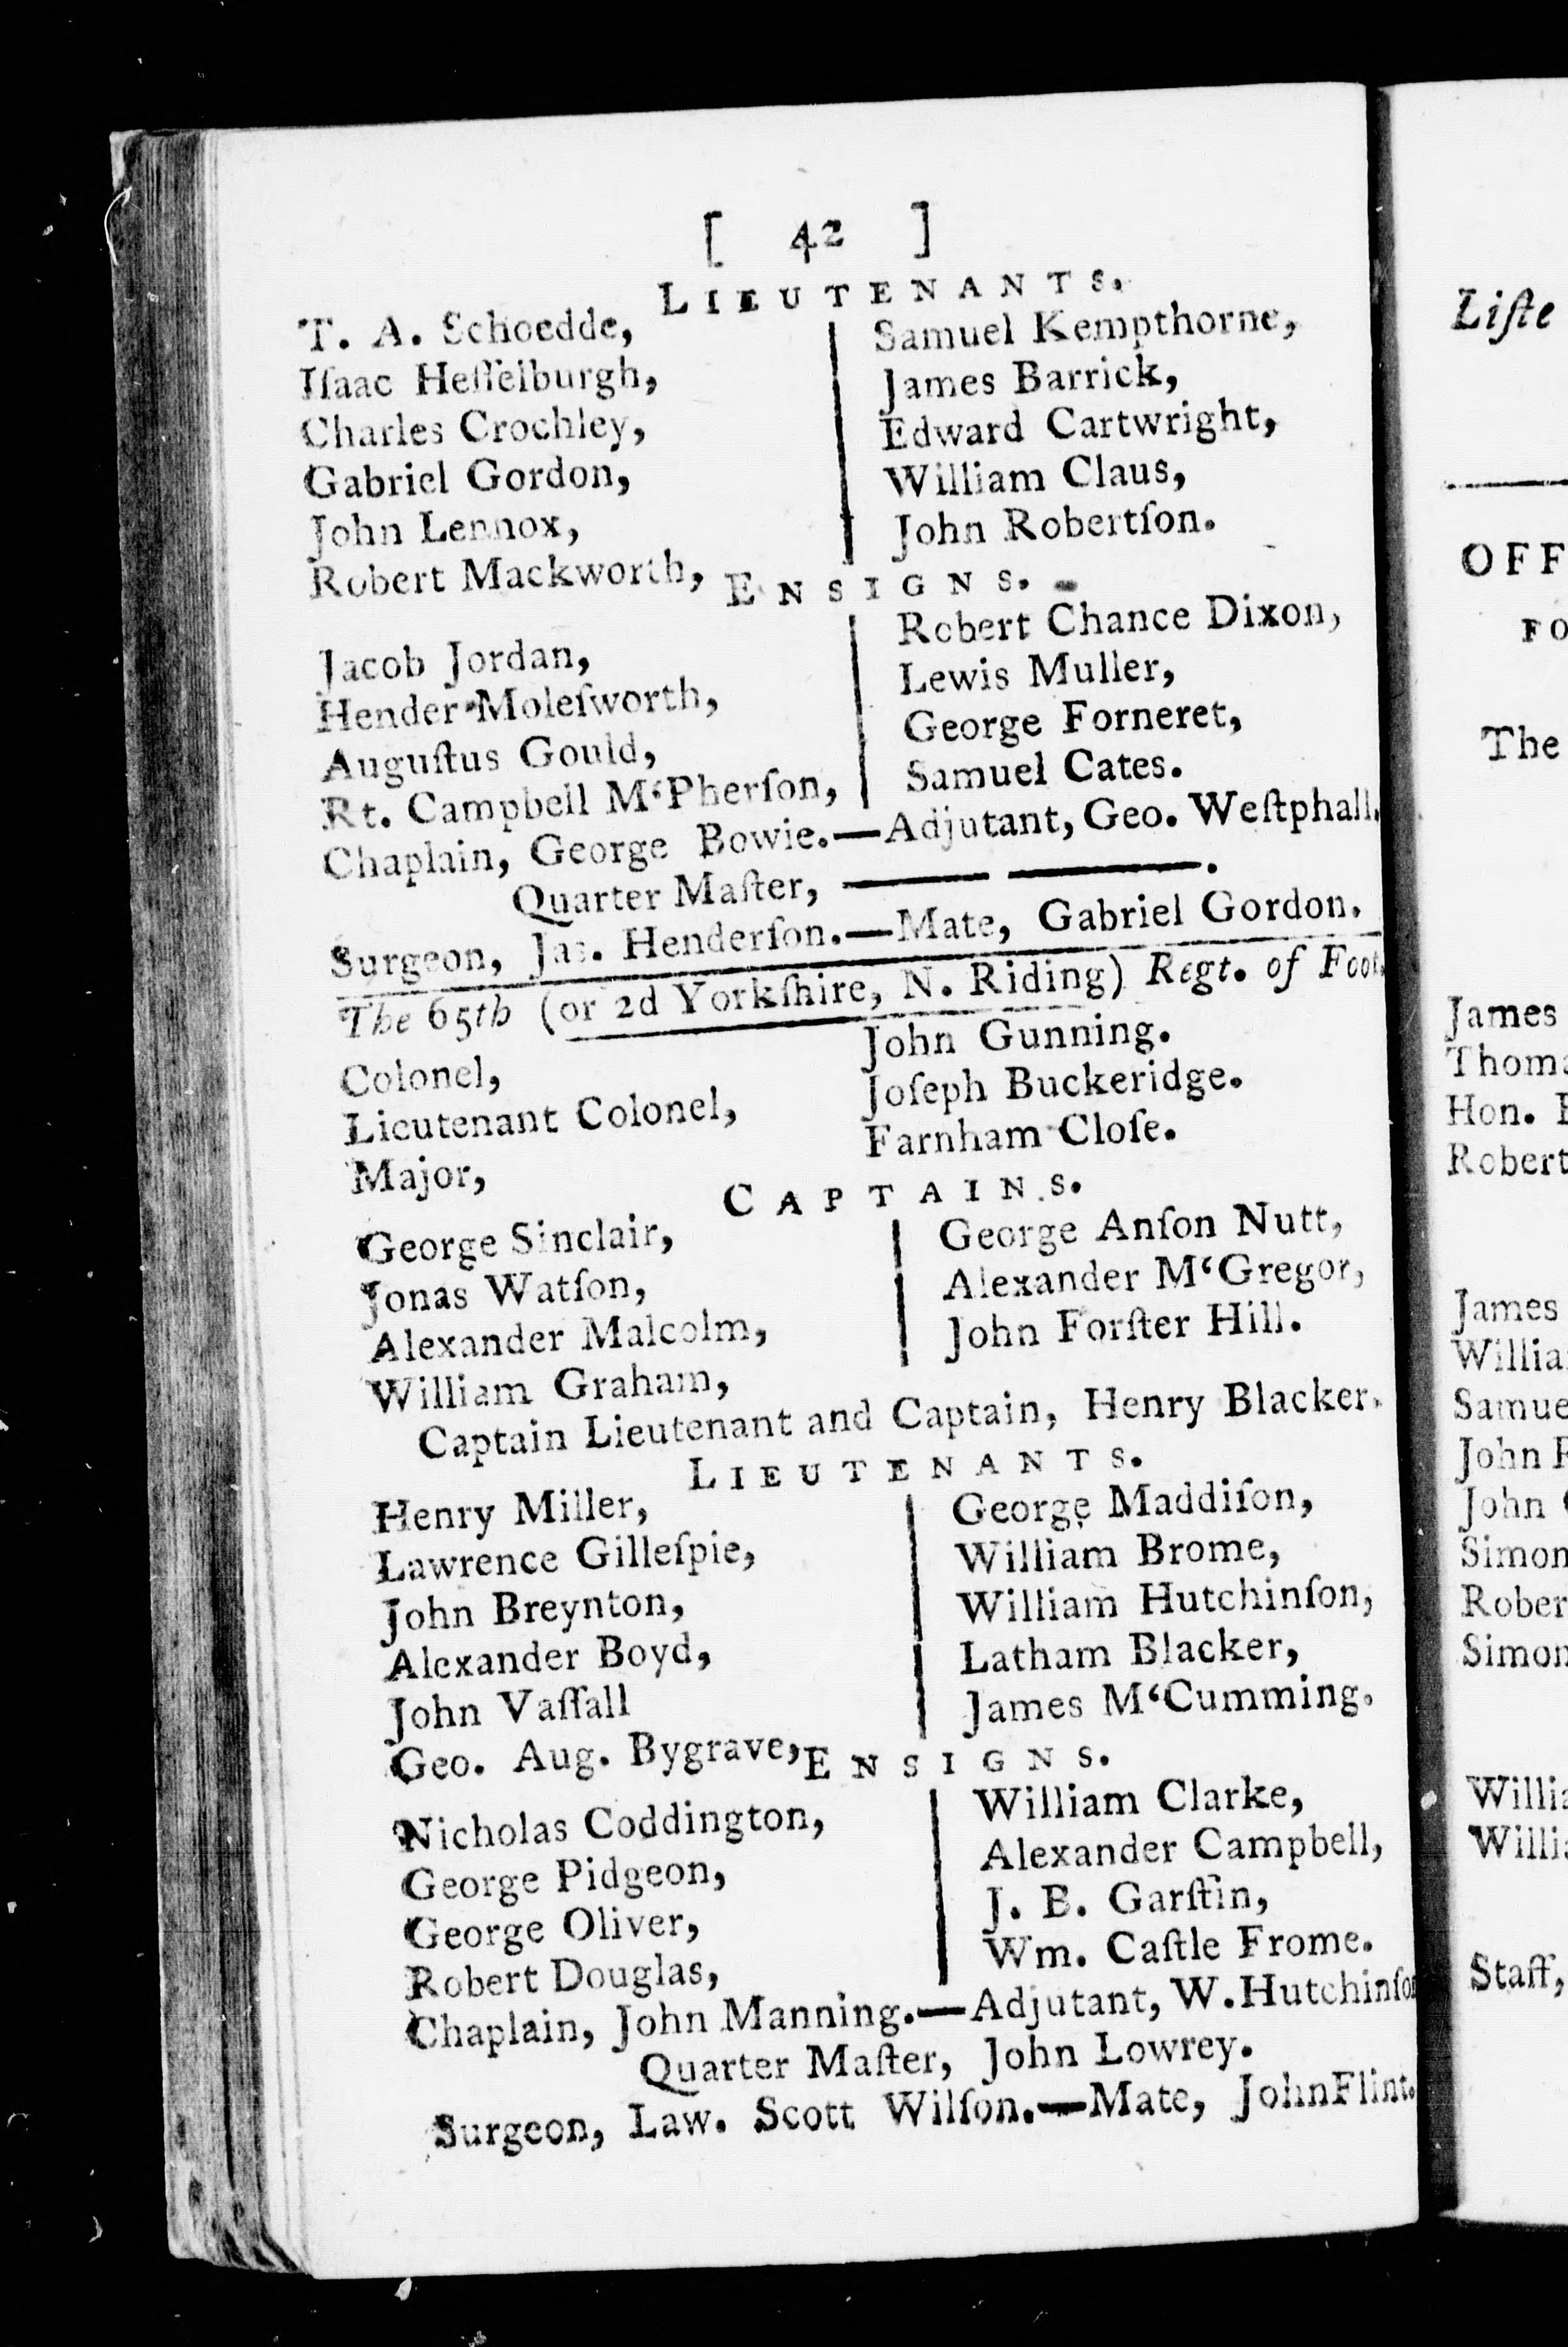 [ 42 ]
LIEUTENANTS.
T. A. Schoedde,
Iſaac Heſſelburgh,
Charles Crochley,
Gabriel Gordon,
John Lennox,
Robert Mackworth,
Samuel Kempthorne,
James Barrick,
Edward Cartwright,
William Claus,
John Robertſon.
ENSIGNS.
Jacob Jordan,
Hender Moleſworth,
Auguſtus Gould,
Rt. Campbell M‘Pherſon,
Robert Chance Dixon,
Lewis Muller,
George Forneret,
Samuel Cates.
Chaplain, George Bowie.—Adjutant, Geo. Weſtphall.
Quarter Maſter, —— ——.
Surgeon, Jas. Henderſon.—Mate, Gabriel Gordon.
The 65th (or 2d Yorkſhire, N. Riding) Regt. of Foot.
Colonel, John Gunning.
Lieutenant Colonel, Joſeph Buckeridge.
Major, Farnham Cloſe.
CAPTAINS.
George Sinclair,
Jonas Watſon,
Alexander Malcolm,
William Graham,
George Anſon Nutt,
Alexander M‘Gregor,
John Forſter Hill.
Captain Lieutenant and Captain, Henry Blacker.
LIEUTENANTS.
Henry Miller,
Lawrence Gilleſpie,
John Breynton,
Alexander Boyd,
John Vaſſall
Geo. Aug. Bygrave,
George Maddiſon,
William Brome,
William Hutchinſon,
Latham Blacker,
James M‘Cumming.
ENSIGNS.
Nicholas Coddington,
George Pidgeon,
George Oliver,
Robert Douglas,
William Clarke,
Alexander Campbell,
J. B. Garſtin,
Wm. Caſtle Frome.
Chaplain, John Manning.—Adjutant, W. Hutchinſon
Quarter Maſter, John Lowrey.
Surgeon, Law. Scott Wilſon.—Mate, John Flint.
Liſte
OFF
FO
The
James
Thoma
Hon.
Robert
James
Willia
Samue
John
John
Simon
Rober
Simon
Willia
Willia
Staff,